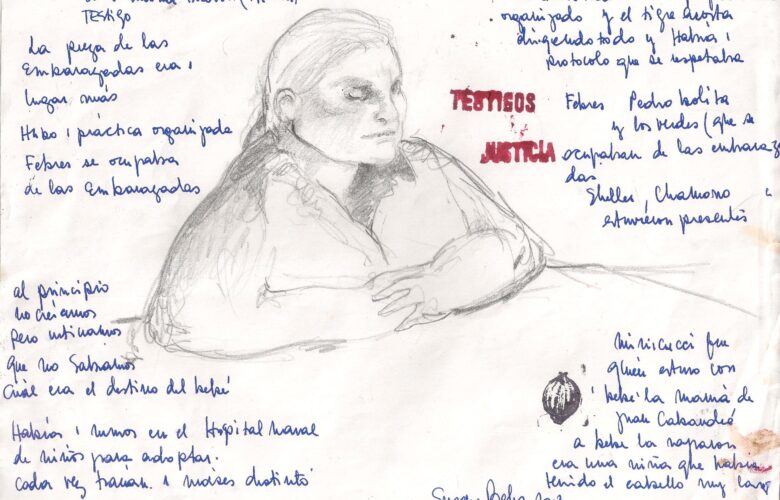 TESTIGO
La pieza de las
Embarazadas era 1
lugar más
Hubo 1 práctica organizada
Febres se ocupaba
de las Embarazadas
organizado y el tigre Acosta
dirigendo todo y Había 1
protocolo que se respetaba
TESTIGOS
JUSTICIA
Febres Pedro bolita
y los verdes (que se
ocupaban de las embaraza
das
Sheller, Chamorro
estuvieron presentes
al principio
no creíamos
pero intuíamos
que no sabíamos
Cuál era el destino del bebé
Habían 1 en el Hospital naval
de niños para adoptar.
cada vez traían 1 moises distinto
fue
quién estuvo con
bebé la mamá de
Juan Cabandié
a bebe la raparon
era una niña que había
tenido el cabello muy largo